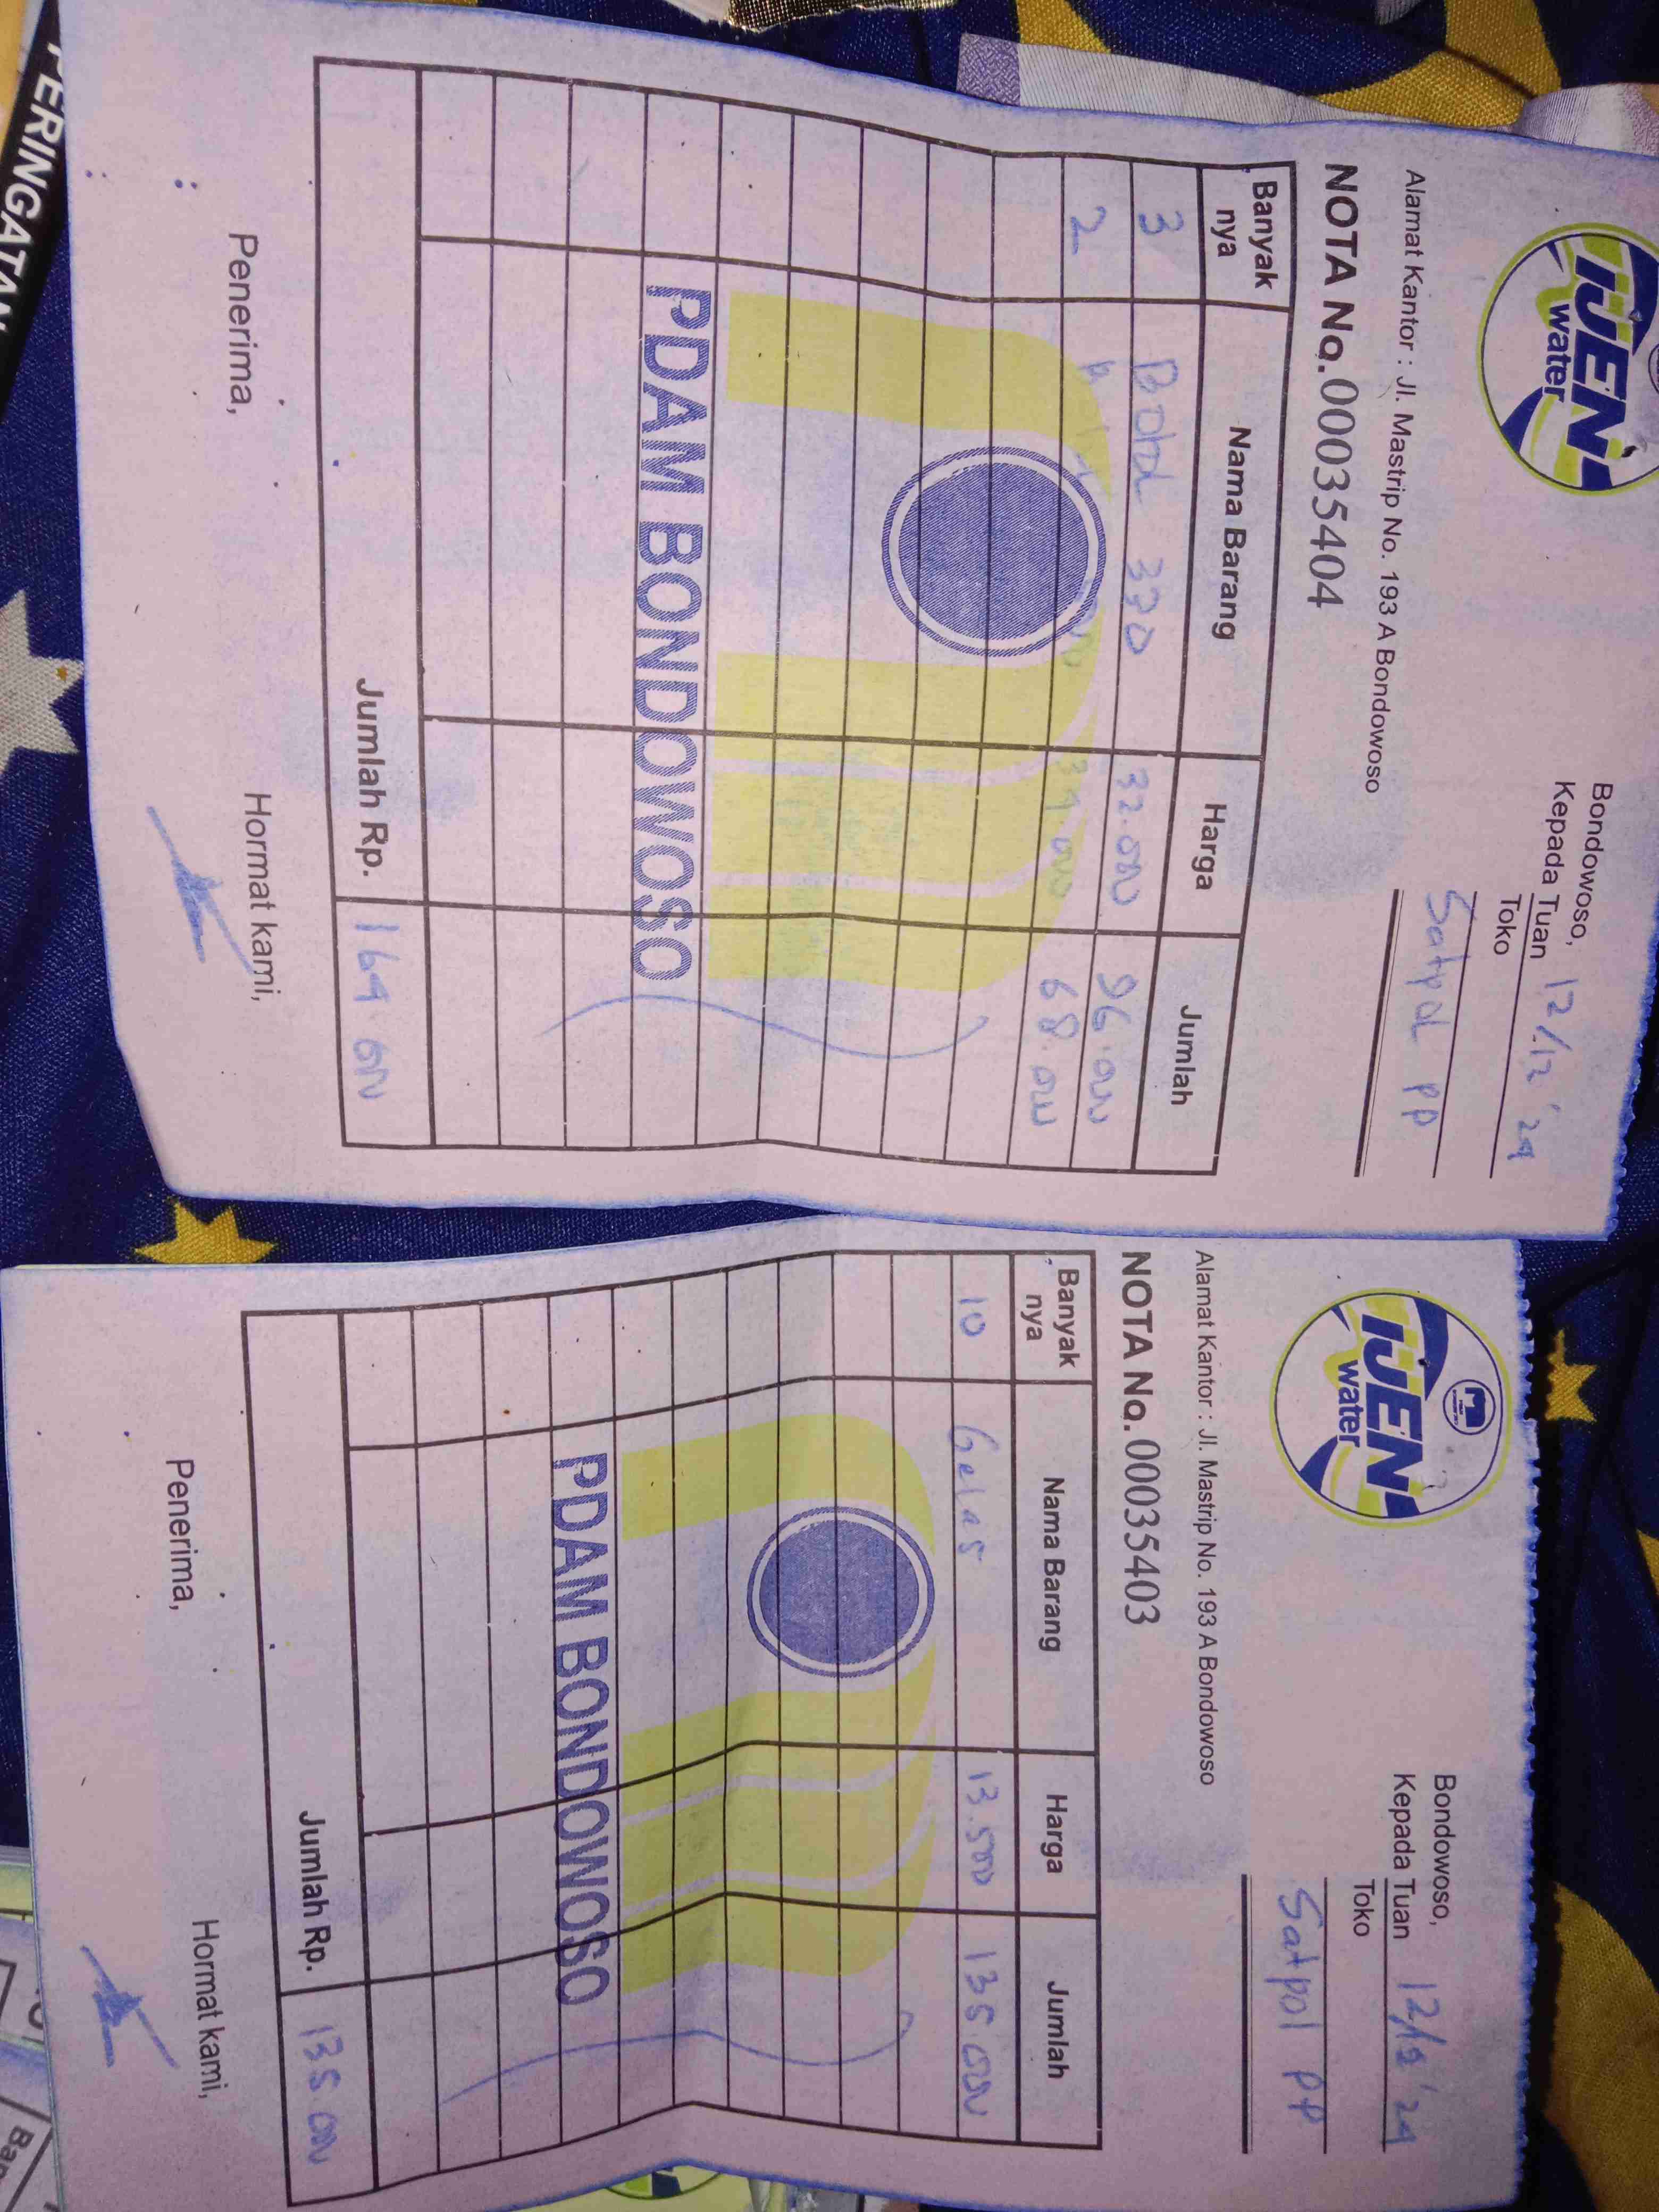 IJEN
water
Bondowoso, 12/12 '24
Kepada Tuan
Toko
Satpol PP
Alamat Kantor : Jl. Mastrip No. 193 A Bondowoso
NOTA No. 00035404
Banyak nya Nama Barang Harga Jumlah
3 Botol 330 32.000 96.000
2 34.000 68.000
PDAM BONDOWOSO
Jumlah Rp. 164.000
Penerima, Hormat kami,
IJEN
water
Bondowoso, 12/12 '24
Kepada Tuan
Toko
Satpol PP
Alamat Kantor : Jl. Mastrip No. 193 A Bondowoso
NOTA No. 00035403
Banyak nya Nama Barang Harga Jumlah
10 Gelas 13.500 135.000
PDAM BONDOWOSO
Jumlah Rp. 135.000
Penerima, Hormat kami,
PERINGATAN